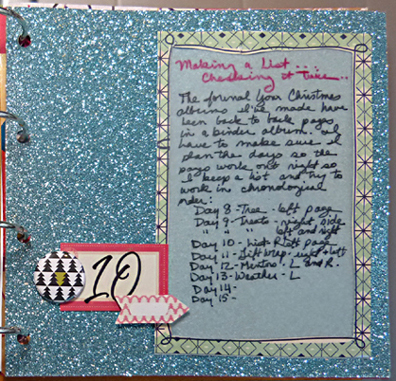 Making a List....
Checking it Twice...
The Journal Your Christmas
albums I've made have
been back to back pages
in a binder album. I
have to make sure I
plan the days so the
pages work out right so
I keep a list and try to
work in chronological
order:
Day 8 - Tree - left page
Day 9 - Treats - right side
" " " left and right
Day 10 - List page
Day 11 - Gift Wrap - right + left
Day 12 - L and R.
Day 13 - Weather - L
Day 14 -
Day 15 -
10